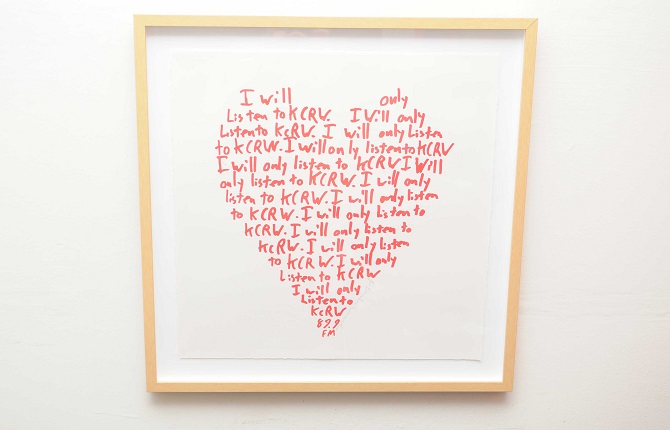 I will only
Listen to KCRW. I Will only
Listen to KCRW. I will only Listen
to KCRW. I will only listen to KCRW
I will only listen to KCRW I Will
only listen to KCRW. I will only
listen to KCRW. I will only listen
to KCRW. I will only Listen to
KCRW. I will only listen to
KCRW. I will only listen
to KCRW. I will only
Listen to KCRW
I will only
Listen to
KCRW
89.9
FM